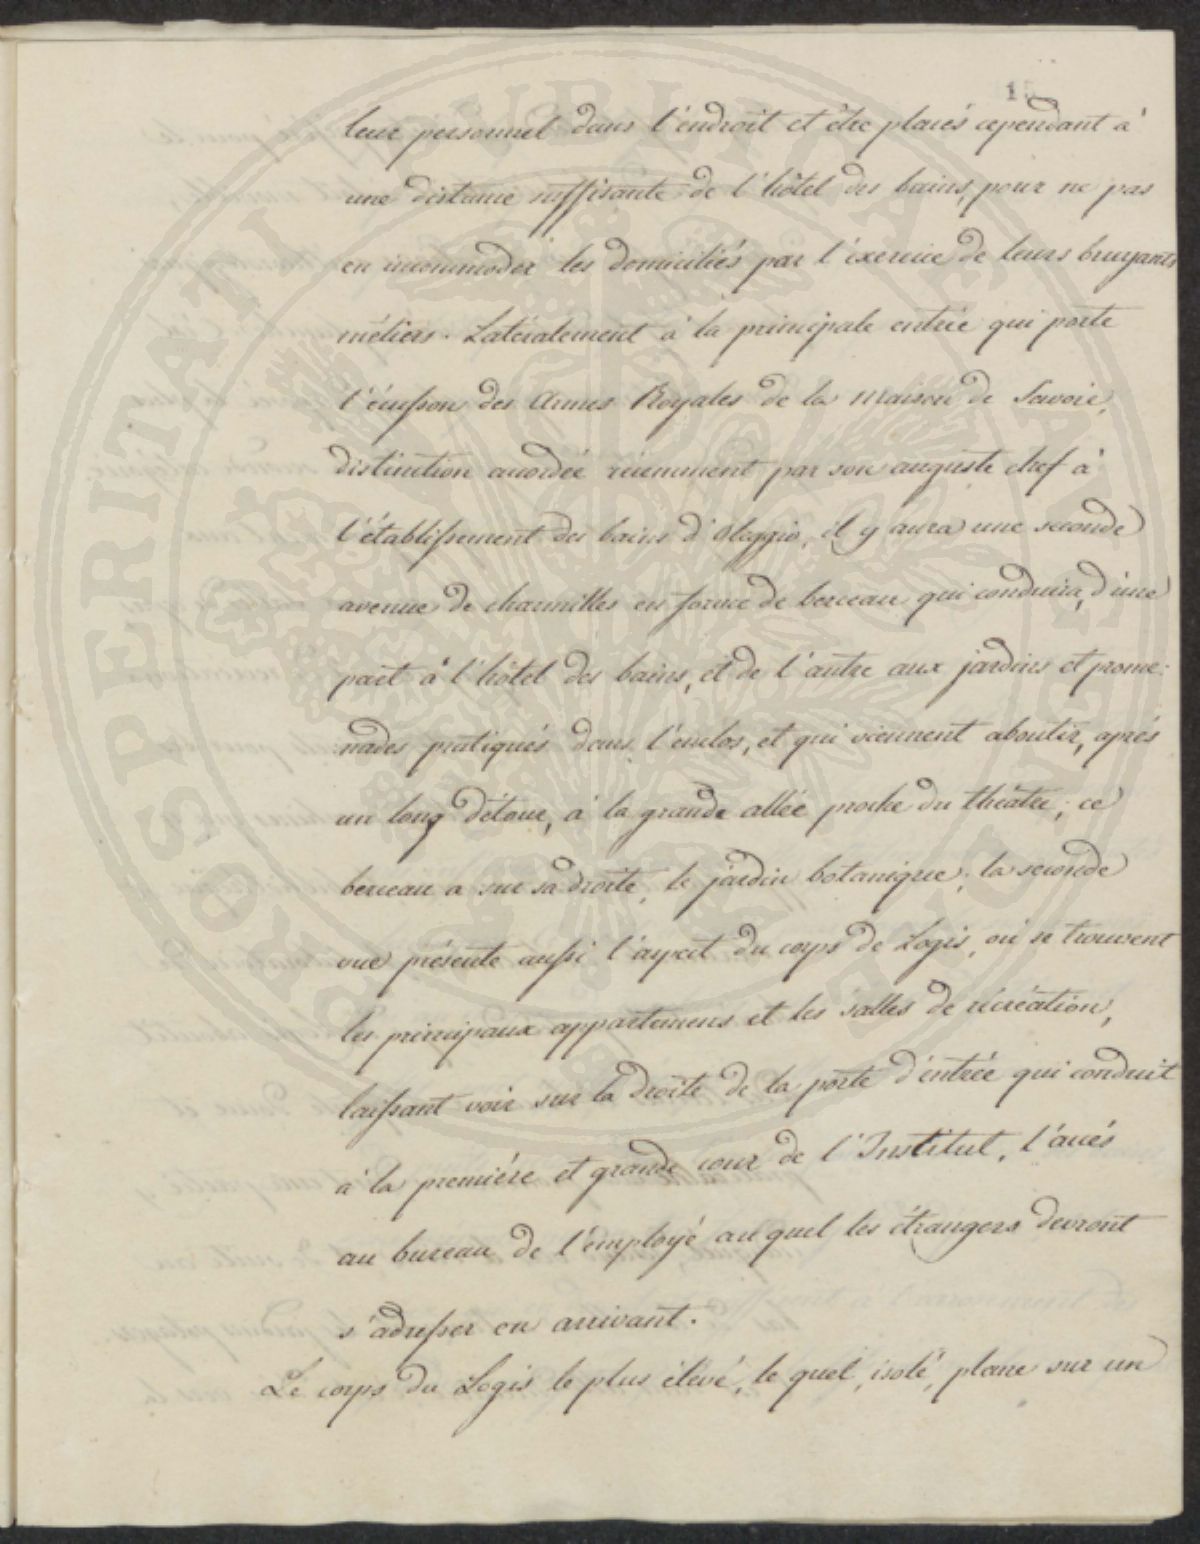 leur personnel dans l'endroit et être placés cependant à
une distance suffisante de l'hôtel des bains, pour ne pas
en incommoder les domiciliés par l'exercice de leurs bruyants
métiers. Latéralement à la principale entrée qui porte
l'écusson des Armes Royales de la Maison de Savoie,
distinction accordée récemment par son auguste chef à
l'établissement des bains d'Oleggio, il y aura une seconde
avenue de charmilles en forme de berceau qui conduira, d'une
part à l'hôtel des bains, et de l'autre aux jardins et prome-
nades pratiqués dans l'enclos, et qui viennent aboutir, après
un long détour, à la grande allée proche du théâtre; ce
berceau a sur sa droite, le jardin botanique; la seconde
vue présente aussi l'aspect du corps de Logis, où se trouvent
les principaux appartemens et les salles de récréation,
laissant voir sur la droite de la porte d'entrée qui conduit
à la première et grande cour de l'Institut, l'accés
au bureau de l'employé au quel les étrangers devront
s'adresser en arrivant.
Le corps du Logis le plus élevé, le quel, isolé, plane sur un
PROSPERITATI PUBLICAE AUGENDAE